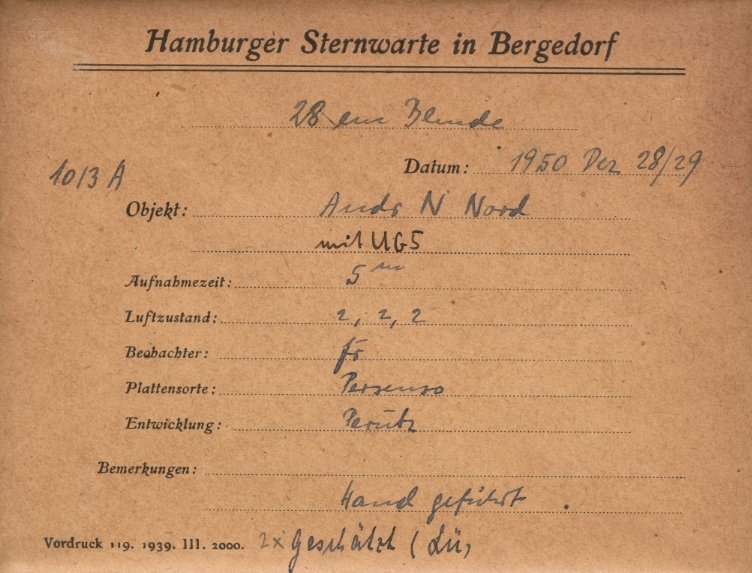 Hamburger Sternwarte in Bergedorf
28 cm Blende
1013 A
Datum: 1950 Dez 28/29
Objekt: Andr N Nord
mit UG5
Aufnahmezeit: 5 m
Luftzustand: 2, 2, 2
Beobachter: fr
Plattensorte: Persenso
Entwicklung: Perutz
Bemerkungen:
Hand geführt.
Vordruck 119. 1939. III. 2000. 2x geschätzt (Lü)